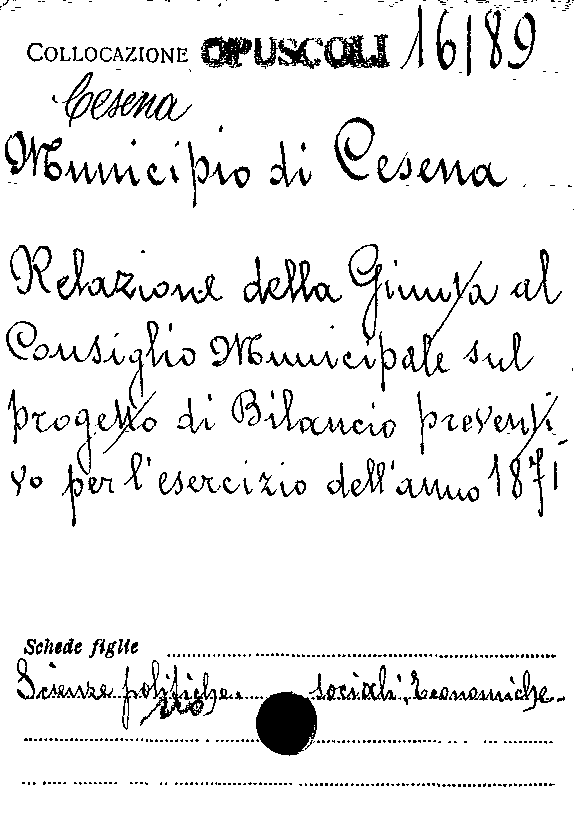 COLLOCAZIONE OPUSCOLI 16/89
Cesena
Municipio di Cesena
Relazione della Giunta al
Consiglio Municipale sul
progetto di Bilancio preventi
vo per l'esercizio dell'anno 1871
Schede figlie
Scienze politiche. sociali, Economiche.